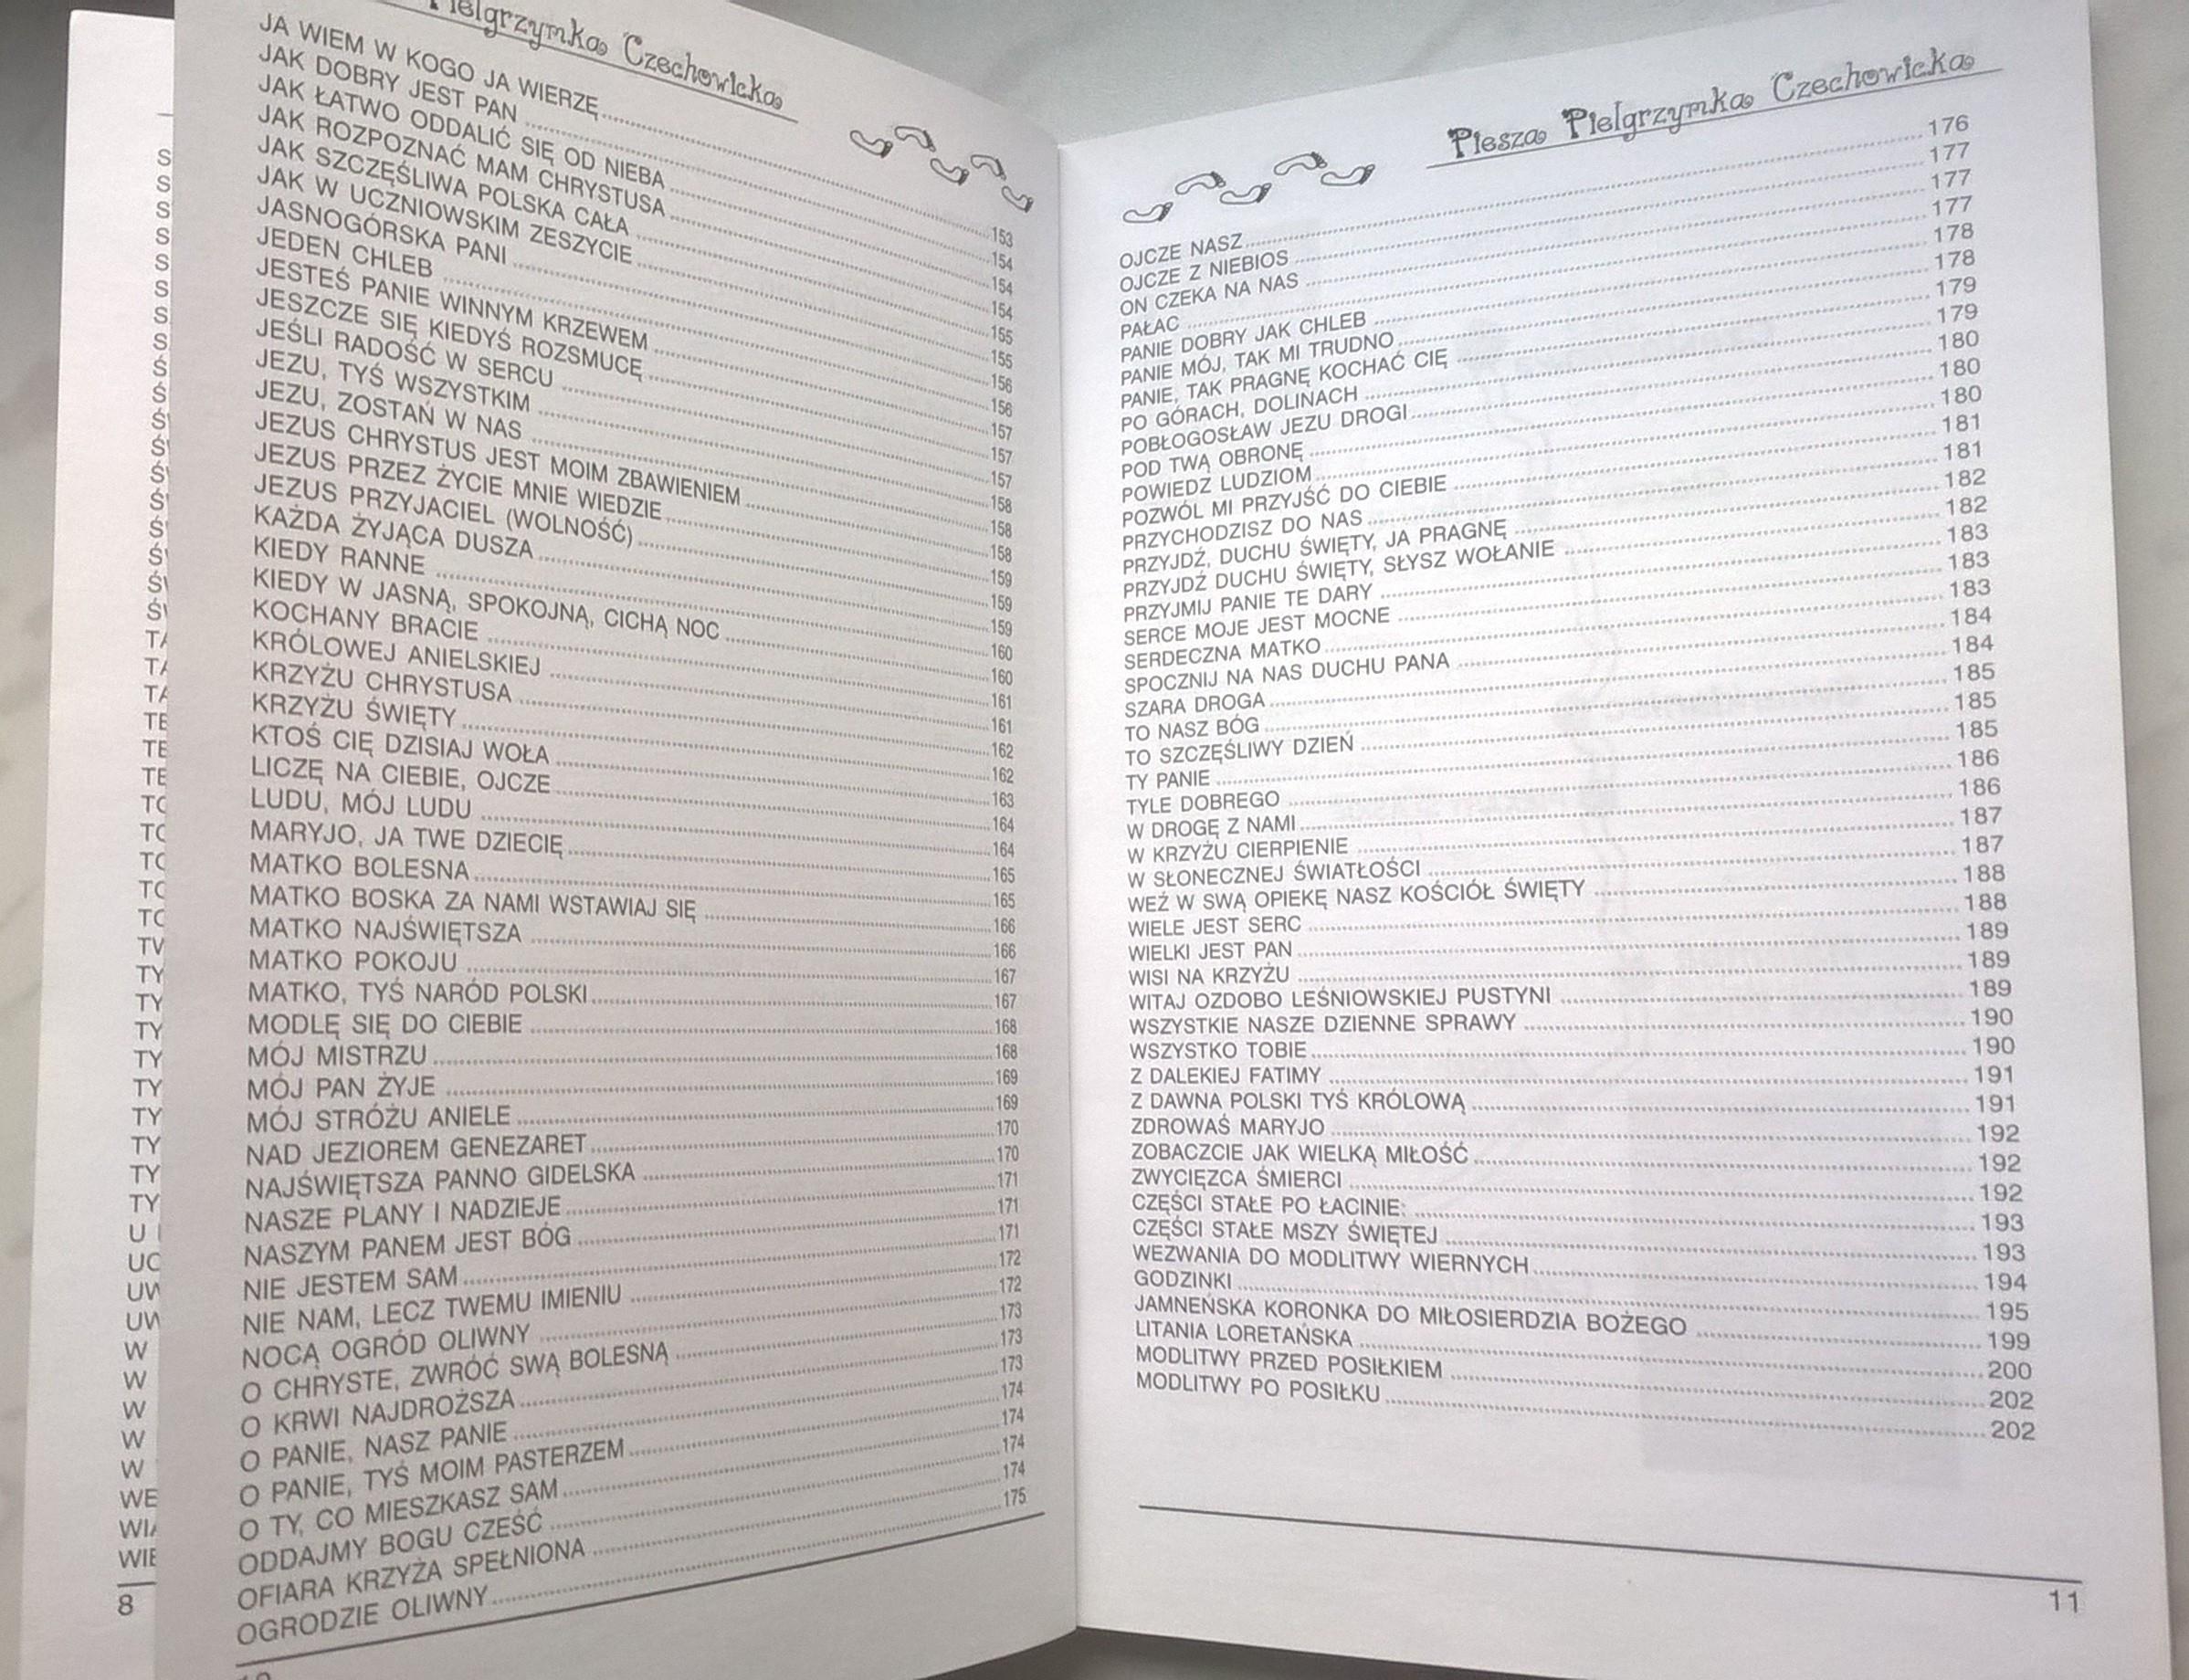 Pielgrzymka Czechowicka
JA WIEM W KOGO JA WIERZĘ 153
JAK DOBRY JEST PAN 154
JAK ŁATWO ODDALIĆ SIĘ OD NIEBA 154
JAK ROZPOZNAĆ MAM CHRYSTUSA 154
JAK SZCZĘŚLIWA POLSKA CAŁA 155
JAK W UCZNIOWSKIM ZESZYCIE 155
JASNOGÓRSKA PANI 156
JEDEN CHLEB 156
JESTEŚ PANIE WINNYM KRZEWEM 157
JESZCZE SIĘ KIEDYŚ ROZSMUCĘ 157
JEŚLI RADOŚĆ W SERCU 157
JEZU, TYŚ WSZYSTKIM 158
JEZU, ZOSTAŃ W NAS 158
JEZUS CHRYSTUS JEST MOIM ZBAWIENIEM 158
JEZUS PRZEZ ŻYCIE MNIE WIEDZIE 159
JEZUS PRZYJACIEL (WOLNOŚĆ) 159
KAŻDA ŻYJĄCA DUSZA 159
KIEDY RANNE 160
KIEDY W JASNĄ, SPOKOJNĄ, CICHĄ NOC 160
KOCHANY BRACIE 161
KRÓLOWEJ ANIELSKIEJ 161
KRZYŻU CHRYSTUSA 162
KRZYŻU ŚWIĘTY 162
KTOŚ CIĘ DZISIAJ WOŁA 163
LICZĘ NA CIEBIE, OJCZE 164
LUDU, MÓJ LUDU 164
MARYJO, JA TWE DZIECIĘ 165
MATKO BOLESNA 165
MATKO BOSKA ZA NAMI WSTAWIAJ SIĘ 166
MATKO NAJŚWIĘTSZA 166
MATKO POKOJU 167
MATKO, TYŚ NARÓD POLSKI 167
MODLĘ SIĘ DO CIEBIE 168
MÓJ MISTRZU 168
MÓJ PAN ŻYJE 169
MÓJ STRÓŻU ANIELE 169
NAD JEZIOREM GENEZARET 170
NAJŚWIĘTSZA PANNO GIDELSKA 170
NASZE PLANY I NADZIEJE 171
NASZYM PANEM JEST BÓG 171
NIE JESTEM SAM 171
NIE NAM, LECZ TWEMU IMIENIU 172
NOCĄ OGRÓD OLIWNY 172
O CHRYSTE, ZWRÓĆ SWĄ BOLESNĄ 173
O KRWI NAJDROŻSZA 173
O PANIE, NASZ PANIE 173
O PANIE, TYŚ MOIM PASTERZEM 174
O TY, CO MIESZKASZ SAM 174
ODDAJMY BOGU CZEŚĆ 174
OFIARA KRZYŻA SPEŁNIONA 174
OGRODZIE OLIWNY 175
8
Piesza Pielgrzymka Czechowicka
OJCZE NASZ 176
OJCZE Z NIEBIOS 177
ON CZEKA NA NAS 177
PAŁAC 177
PANIE DOBRY JAK CHLEB 178
PANIE MÓJ, TAK MI TRUDNO 178
PANIE, TAK PRAGNĘ KOCHAĆ CIĘ 179
PO GÓRACH, DOLINACH 179
POBŁOGOSŁAW JEZU DROGI 180
POD TWĄ OBRONĘ 180
POWIEDZ LUDZIOM 180
POZWÓL MI PRZYJŚĆ DO CIEBIE 181
PRZYCHODZISZ DO NAS 181
PRZYJDŹ, DUCHU ŚWIĘTY, JA PRAGNĘ 182
PRZYJDŹ DUCHU ŚWIĘTY, SŁYSZ WOŁANIE 182
PRZYJMIJ PANIE TE DARY 183
SERCE MOJE JEST MOCNE 183
SERDECZNA MATKO 183
SPOCZNIJ NA NAS DUCHU PANA 184
SZARA DROGA 184
TO NASZ BÓG 185
TO SZCZĘŚLIWY DZIEŃ 185
TY PANIE 185
TYLE DOBREGO 186
W DROGĘ Z NAMI 186
W KRZYŻU CIERPIENIE 187
W SŁONECZNEJ ŚWIATŁOŚCI 187
WEŹ W SWĄ OPIEKĘ NASZ KOŚCIÓŁ ŚWIĘTY 188
WIELE JEST SERC 188
WIELKI JEST PAN 189
WISI NA KRZYŻU 189
WITAJ OZDOBO LEŚNIOWSKIEJ PUSTYNI 189
WSZYSTKIE NASZE DZIENNE SPRAWY 190
WSZYSTKO TOBIE 190
Z DALEKIEJ FATIMY 191
Z DAWNA POLSKI TYŚ KRÓLOWĄ 191
ZDROWAŚ MARYJO 192
ZOBACZCIE JAK WIELKĄ MIŁOŚĆ 192
ZWYCIĘZCA ŚMIERCI 192
CZĘŚCI STAŁE PO ŁACINIE: 193
CZĘŚCI STAŁE MSZY ŚWIĘTEJ 193
WEZWANIA DO MODLITWY WIERNYCH 194
GODZINKI 195
JAMNEŃSKA KORONKA DO MIŁOSIERDZIA BOŻEGO 199
LITANIA LORETAŃSKA 200
MODLITWY PRZED POSIŁKIEM 202
MODLITWY PO POSIŁKU 202
11